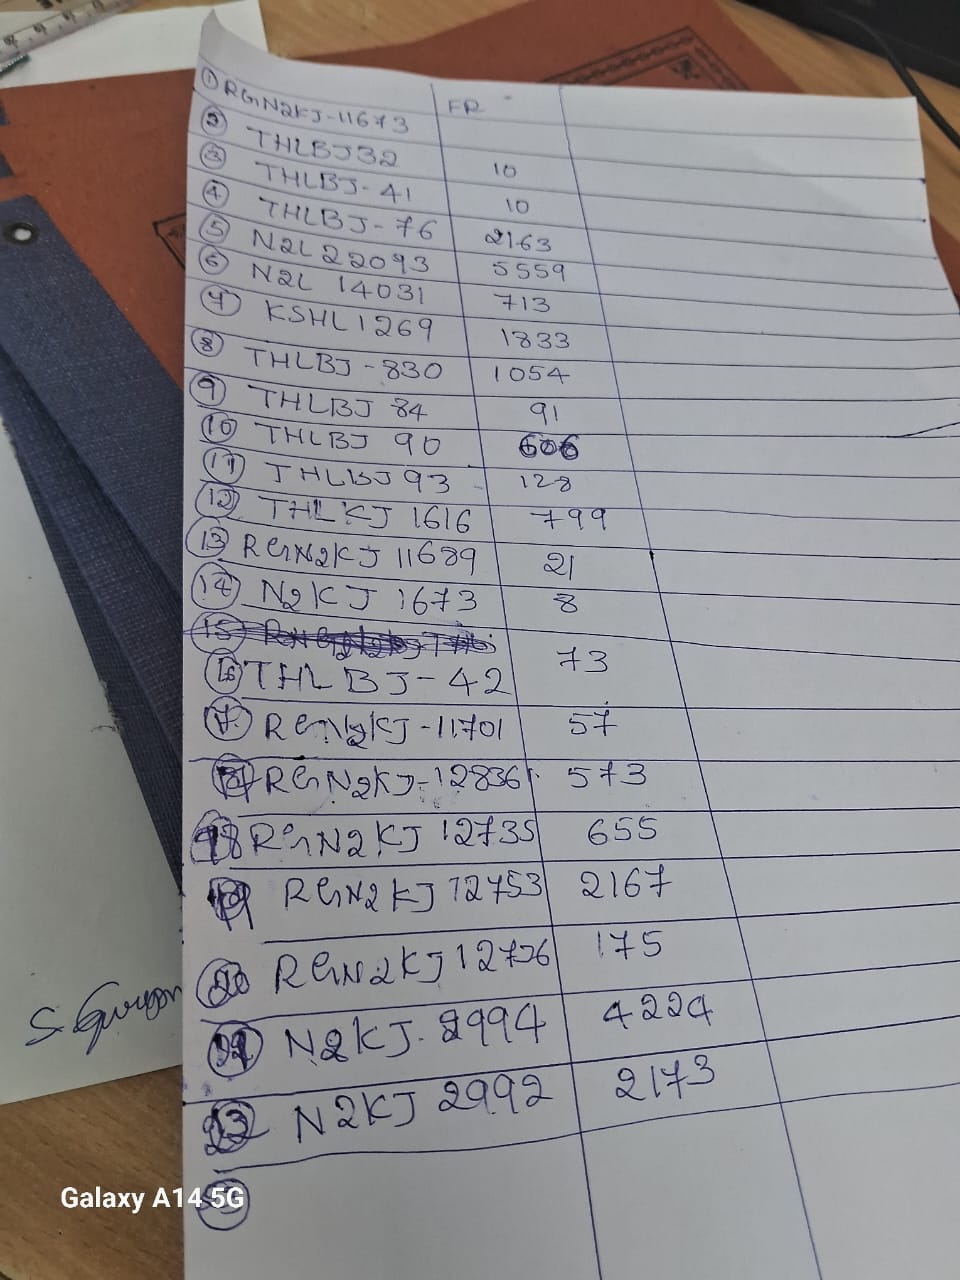 FR
① RGN2KJ-11673
② THLBJ32 10
③ THLBJ-41 10
④ THLBJ-76 2163
⑤ N2L22093 5559
⑥ N2L 14031 713
⑦ KSHL1269 1833
⑧ THLBJ-830 1054
⑨ THLBJ 84 91
⑩ THLBJ 90 606
⑪ THLBJ93 128
⑫ THLKJ 1616 799
⑬ RGN2KJ 11689 21
⑭ N2KJ 1673 8
⑮
⑯ THLBJ-42 73
⑰ RGN2KJ-11701 57
RGN2KJ-12836 573
18 RGN2KJ 12735 655
19 RGN2KJ 12753 2167
20 RGN2KJ 12726 175
N2KJ. 2994 4224
N2KJ 2992 2173
Galaxy A14 5G